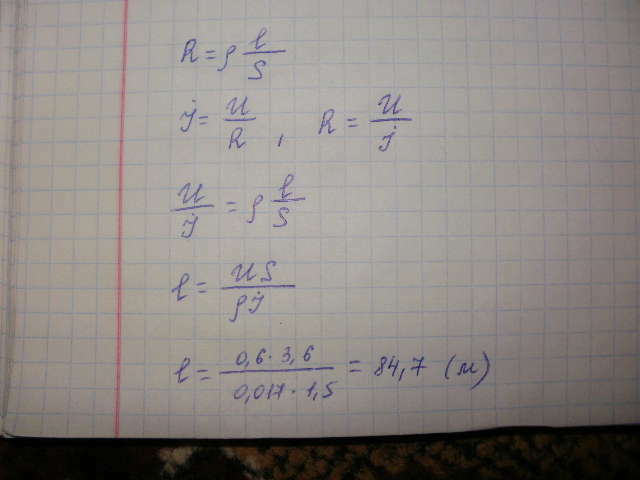 R = ρ l/S
I = U/R , R = U/I
U/I = ρ l/S
l = US/ρI
l = 0,6·3,6/0,017·1,5 = 84,7 (м)